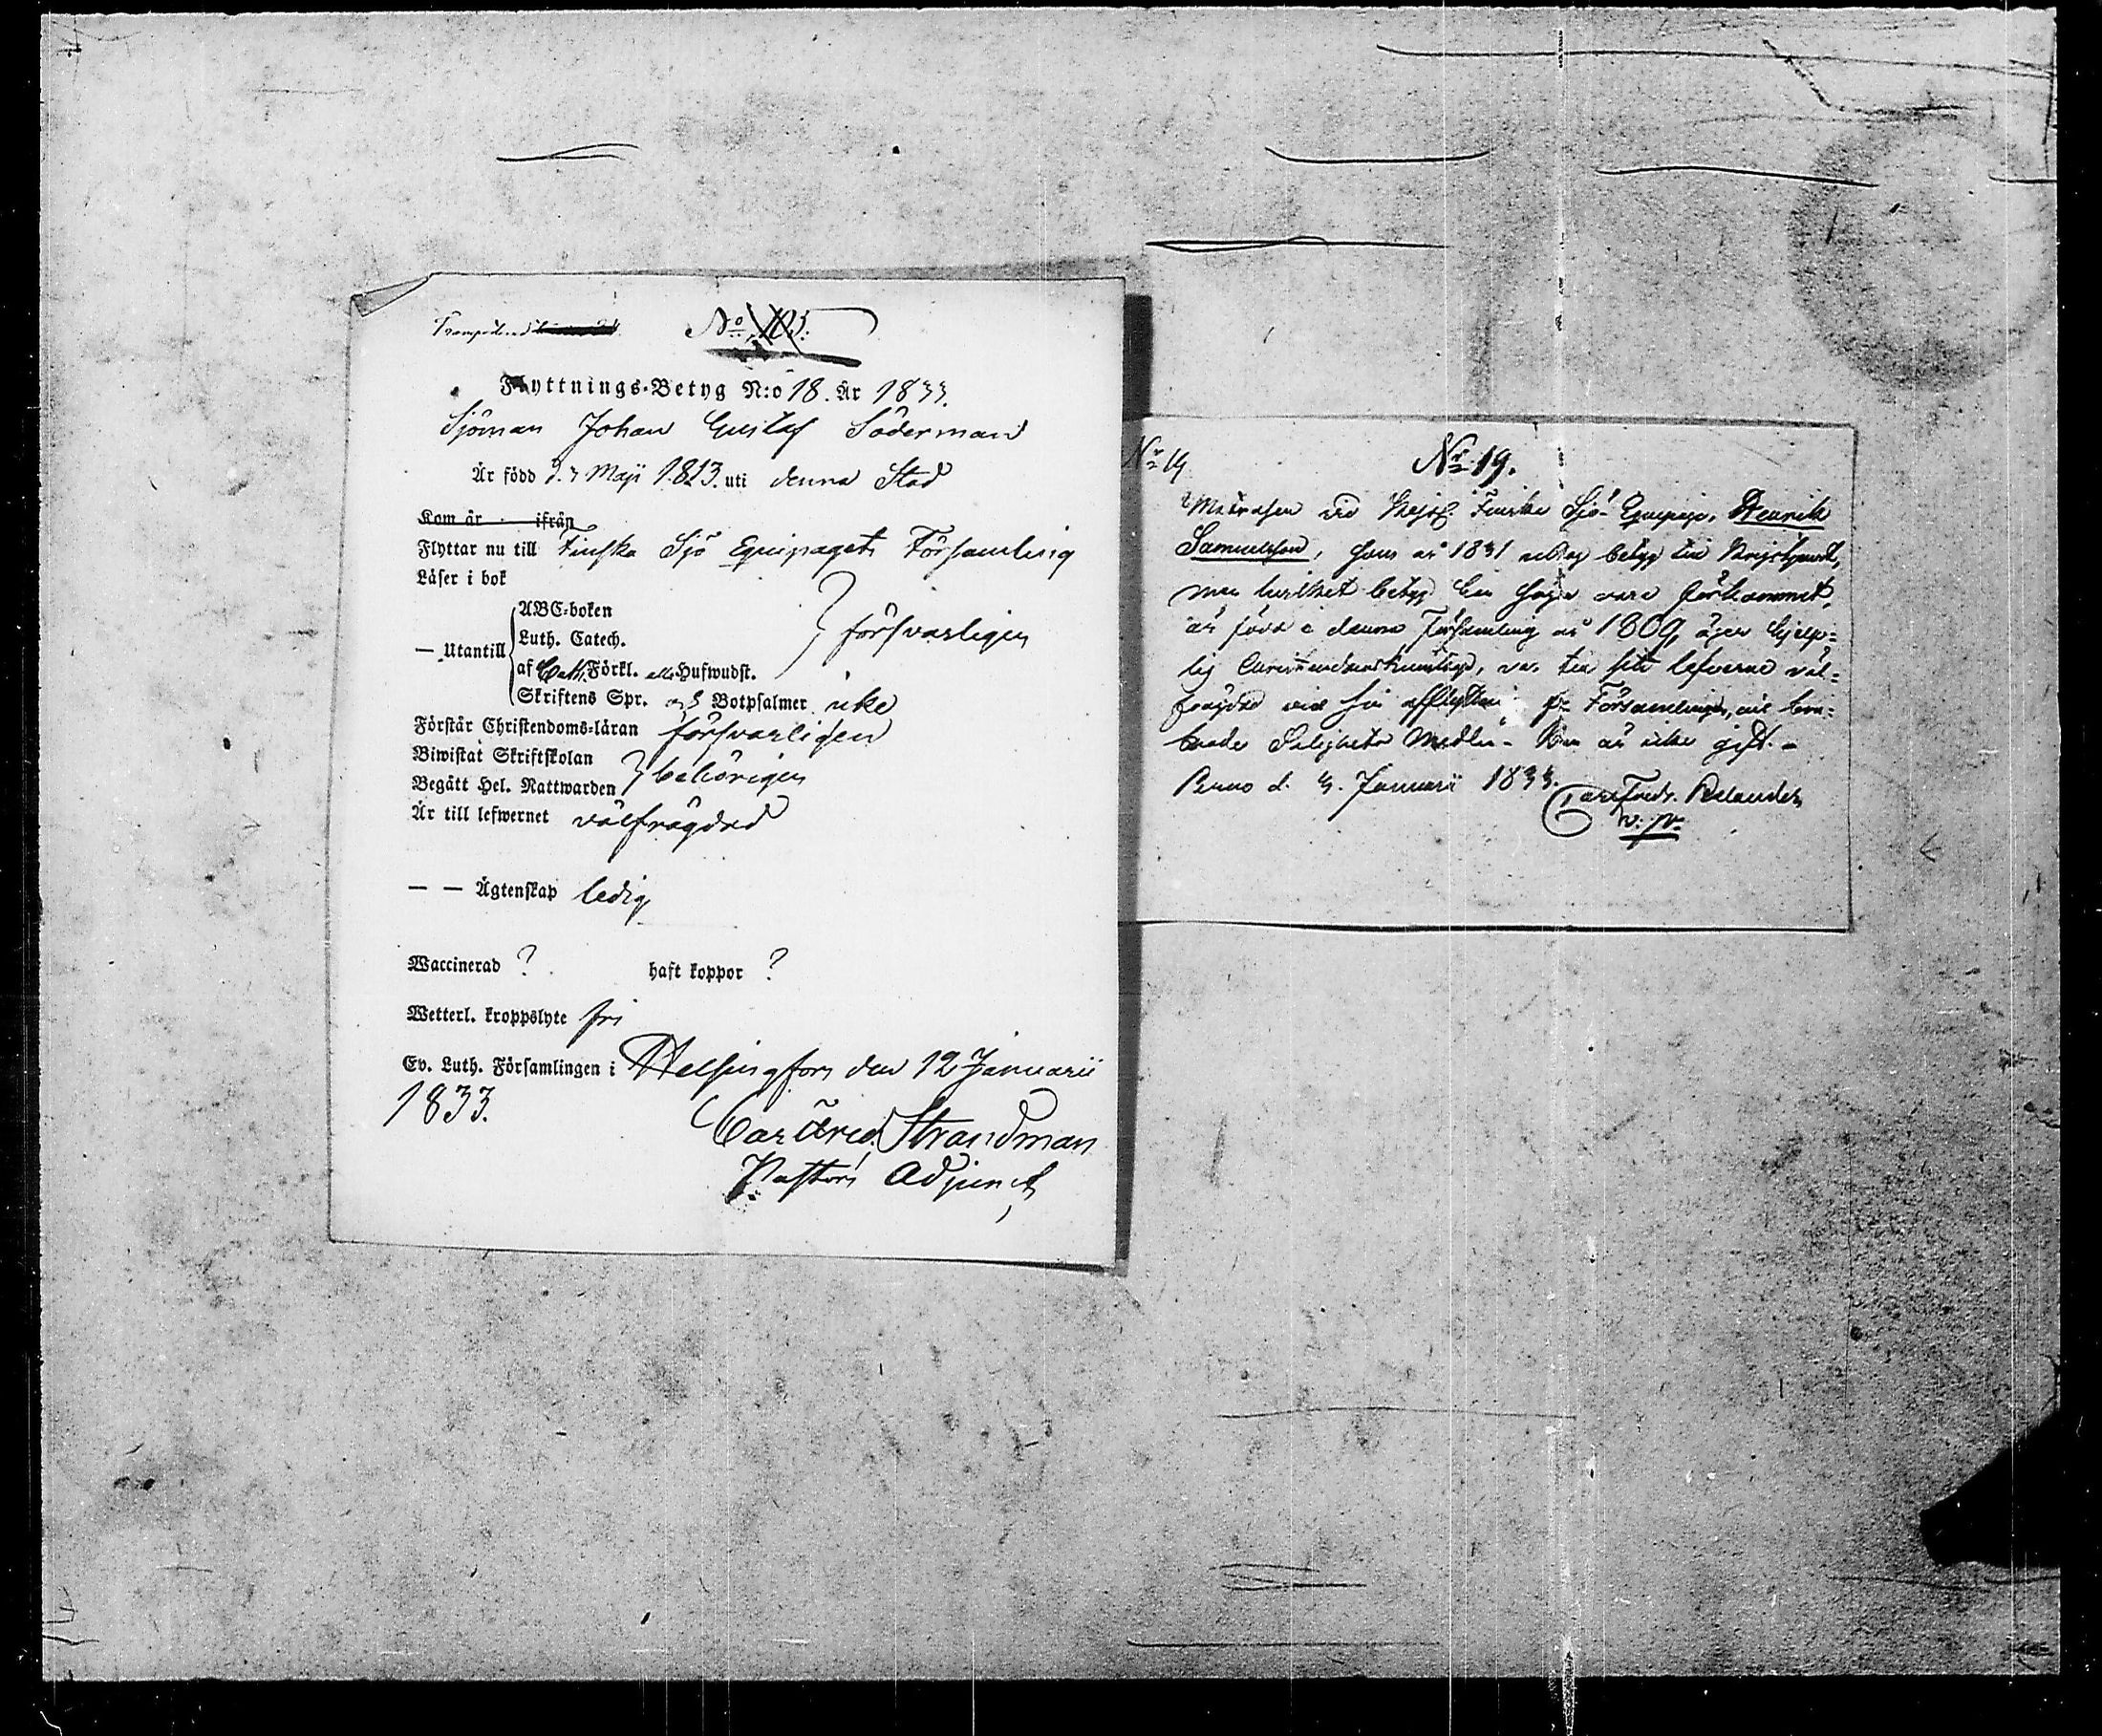 No
Flyttnings-Betyg N:o 18. År 1833.
Sjöman Johan Gustaf Söderman
Är född d. 7 Maji 1813. uti denna Stad
Kom år ifrån
Flyttar nu till Finska Sjö Equipagets Församling
Läser i bok
— Utantill
ABC-boken
Luth. Catech.
af Cath. Förkl. Hufwudst.
} försvarligen
Skriftens Spr. och Botpsalmer icke
Förstår Christendoms-läran försvarligen
Biwistat Skriftskolan
Begått Hel. Nattwarden
} behörigen
Är till lefwernet välfrägdad
— — Ägtenskap ledig
Waccinerad ? haft koppor ?
Wetterl. kroppslyte fri
Ev. Luth. Församlingen i Helsingfors den 12 Januarii
1833.
Carl Fred. Strandman
Pastors Adjunct
No 19
No 19.
Matrosen vid Kejs. Finska Sjö-Equipage, Henrik
Samuelsson, som år 1831 betyg till
men hvilket betyg vara förkommit,
är född i denna Församling år 1809, äger hjelp-
lig Christendomskunskap, var till sitt lefverne väl-
frägdad vid sin afflyttning fr. Församlingen, och
Salighets Medlen. är icke gift. -
d. Januarii 1833.
Carl Fredr. Relander
v. p.